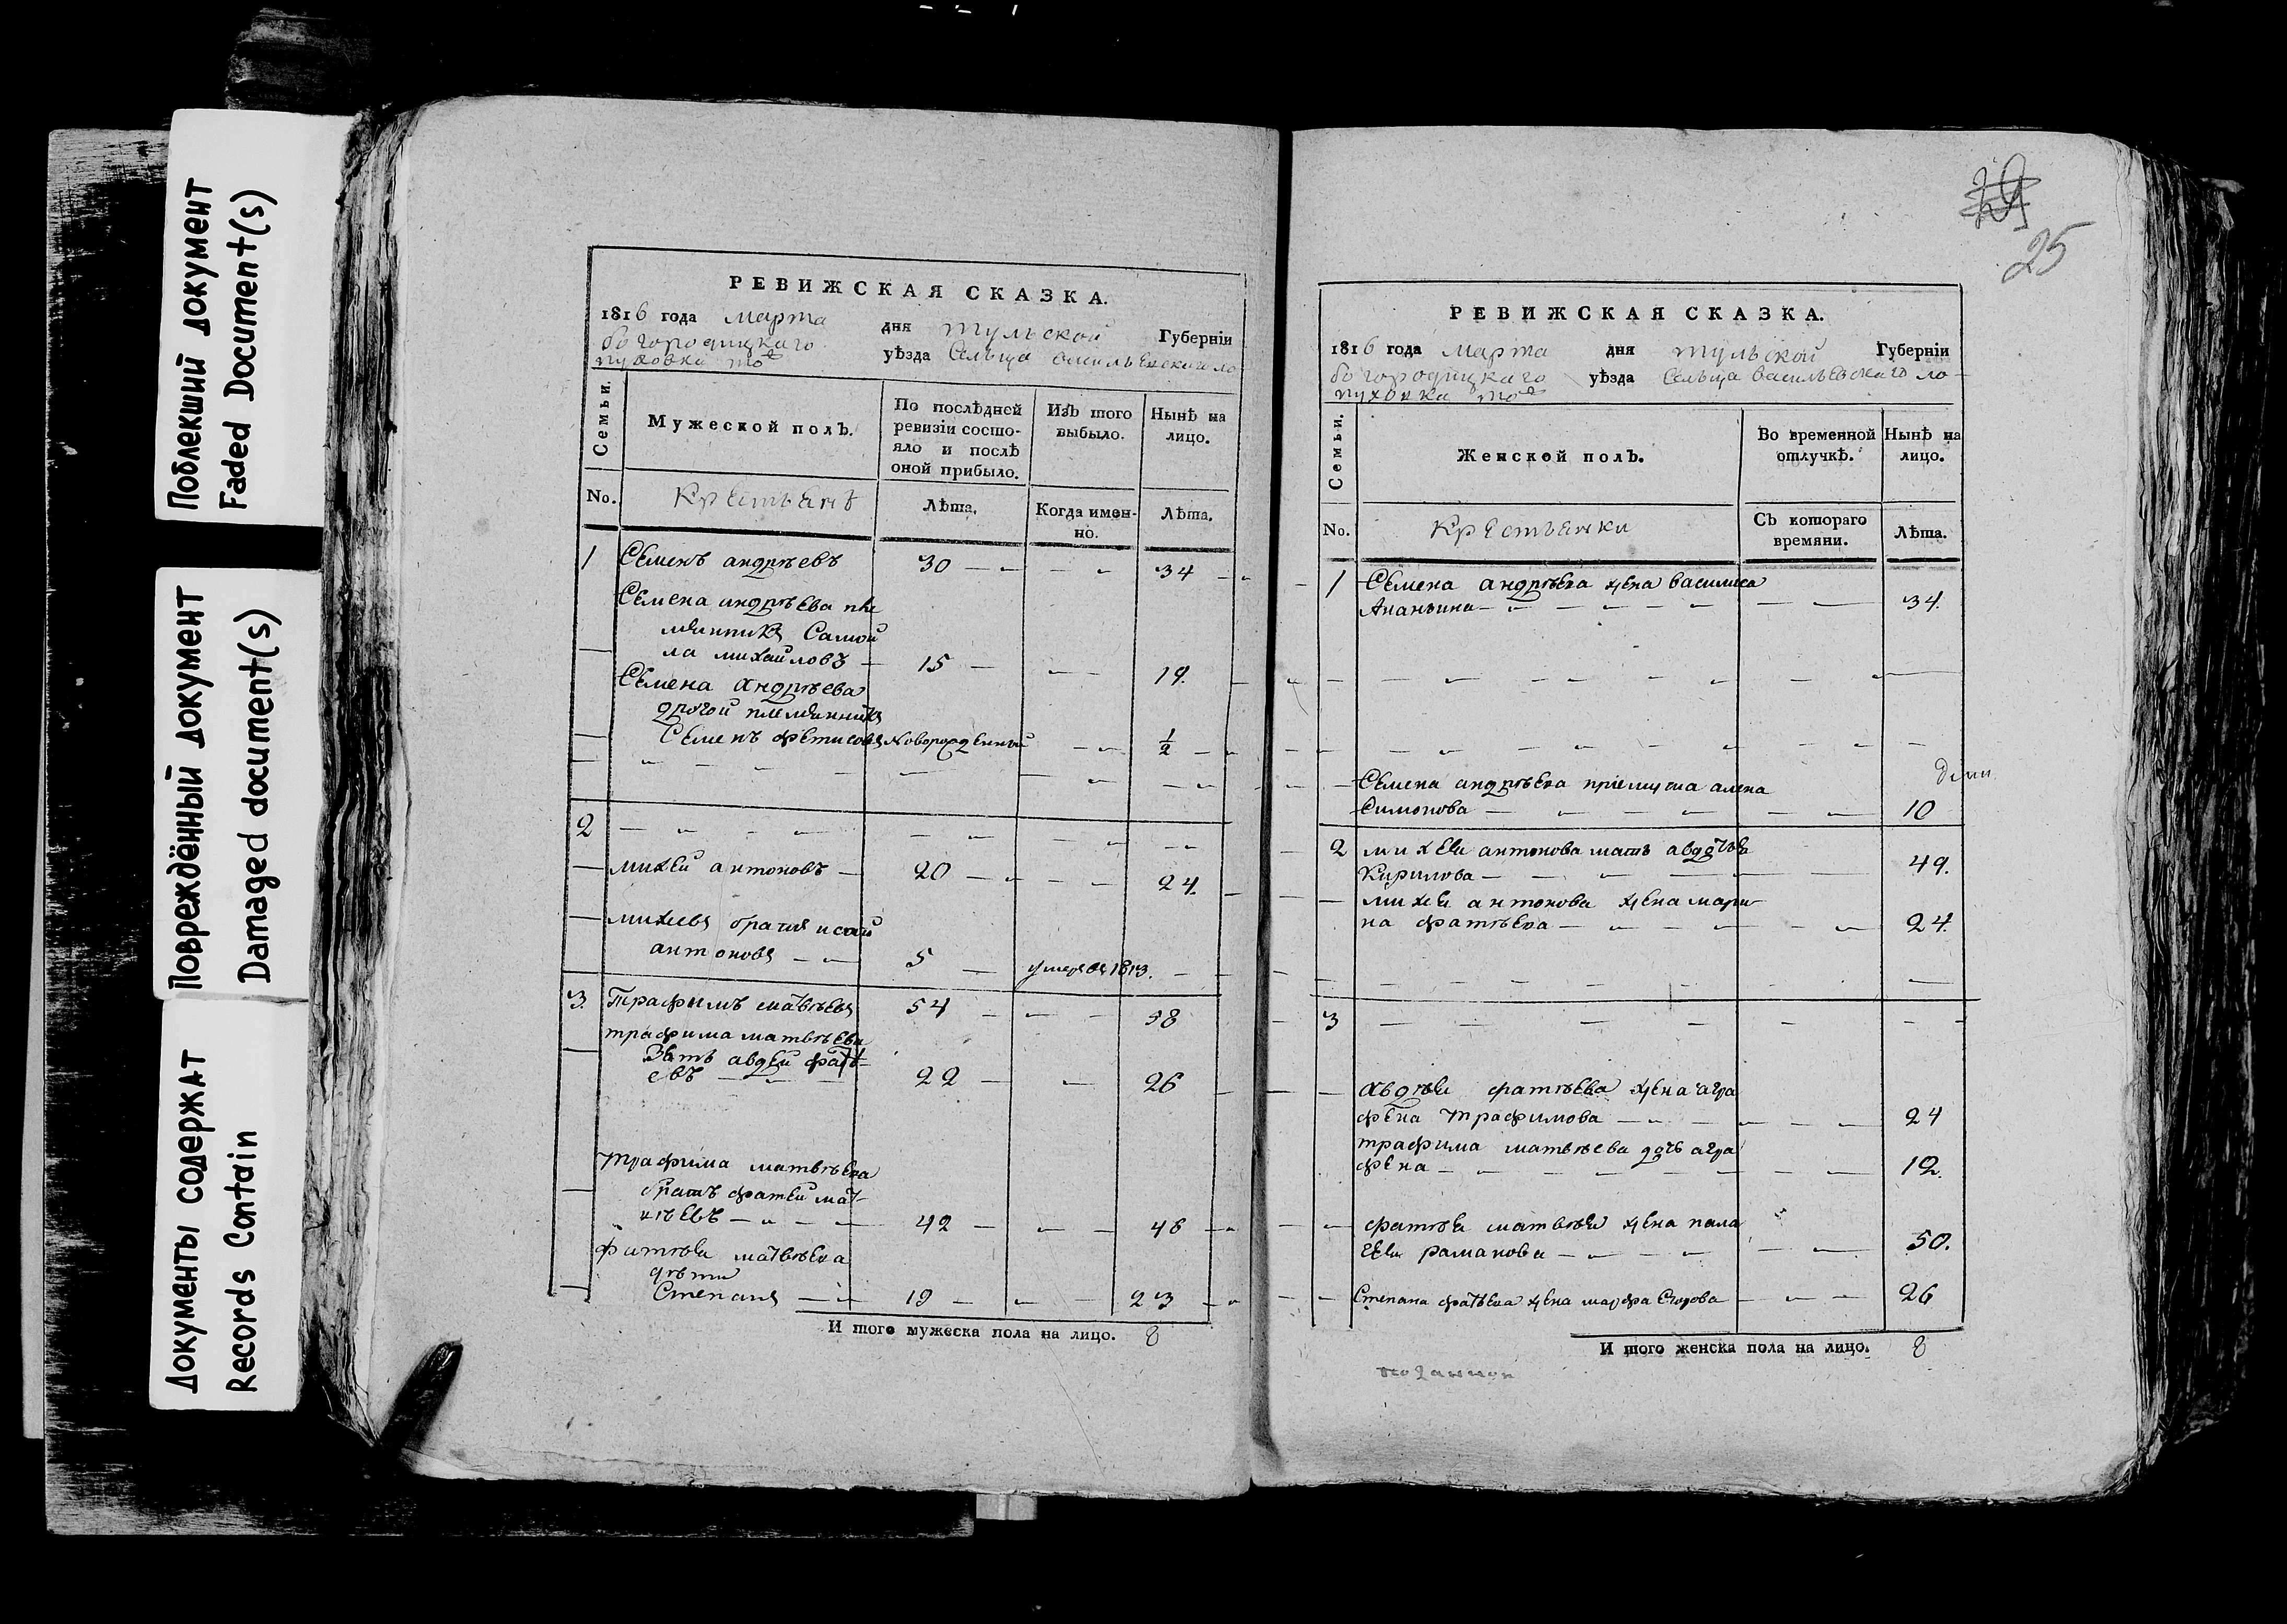 Поблекший документ
Faded Document(s)
Повреждённый документ
Damaged document(s)
Документы содержат
Records Contain
РЕВИЖСКАЯ СКАЗКА.
1816 года марта дня тульской Губернiи
богородицкаго уѣзда Сельца васильевскаго ло
пуховка тоⷤ
Семьи.
Мужеской полъ.
По послѣдней
ревизiи состо-
яло и послѣ
оной прибыло.
Изъ того
выбыло.
Нынѣ на
лицо.
No.
Крестьянѣ
Лѣта.
Когда имен-
но.
Лѣта.
1 Семенъ андрѣевъ 30 34
Семена андрѣева пле
мянникъ Самой
ла михайловъ 15 19.
Семена андрѣева
другой племянникъ
Семенъ фетисовъ Новорожденной ½
2
михей антоновъ 20 24.
михеевъ братъ исай
антоновъ 5 умеръ въ 1813.
3. Трафимъ матвѣевъ 54 58
трафима матвѣева
Зять авдей фатѣ-
евъ 22 26
трафима матвѣева
братъ фатей мат-
вѣевъ 42 46
фатѣя матвѣева
дѣти
Степанъ 19 23
И того мужеска пола на лицо. 8
25
РЕВИЖСКАЯ СКАЗКА.
1816 года марта дня тульской Губернiи
богородицкаго уѣзда Сельца васильевскаго ло-
пуховка тоⷤ
Семьи.
Женской полъ.
Во временной
отлучкѣ.
Нынѣ на
лицо.
No.
Крестьянки
Съ котораго
времяни.
Лѣта.
1 Семена андрѣева жена василиса
Ананьина 34.
Семена андрѣева прiемуша алена
Симонова 10
2 михея антонова мать авдотья
Кирилова 49.
михея антонова жена мари
на фатѣева 24.
3
Авдѣя фатѣева жена агра
фена трафимова 24
трафима матвѣева дочь агра
фена 12.
фатѣя матвѣя жена пала
гея раманова 50.
Степана фатѣева жена марфа Егорова 26
И того женска пола на лицо. 8